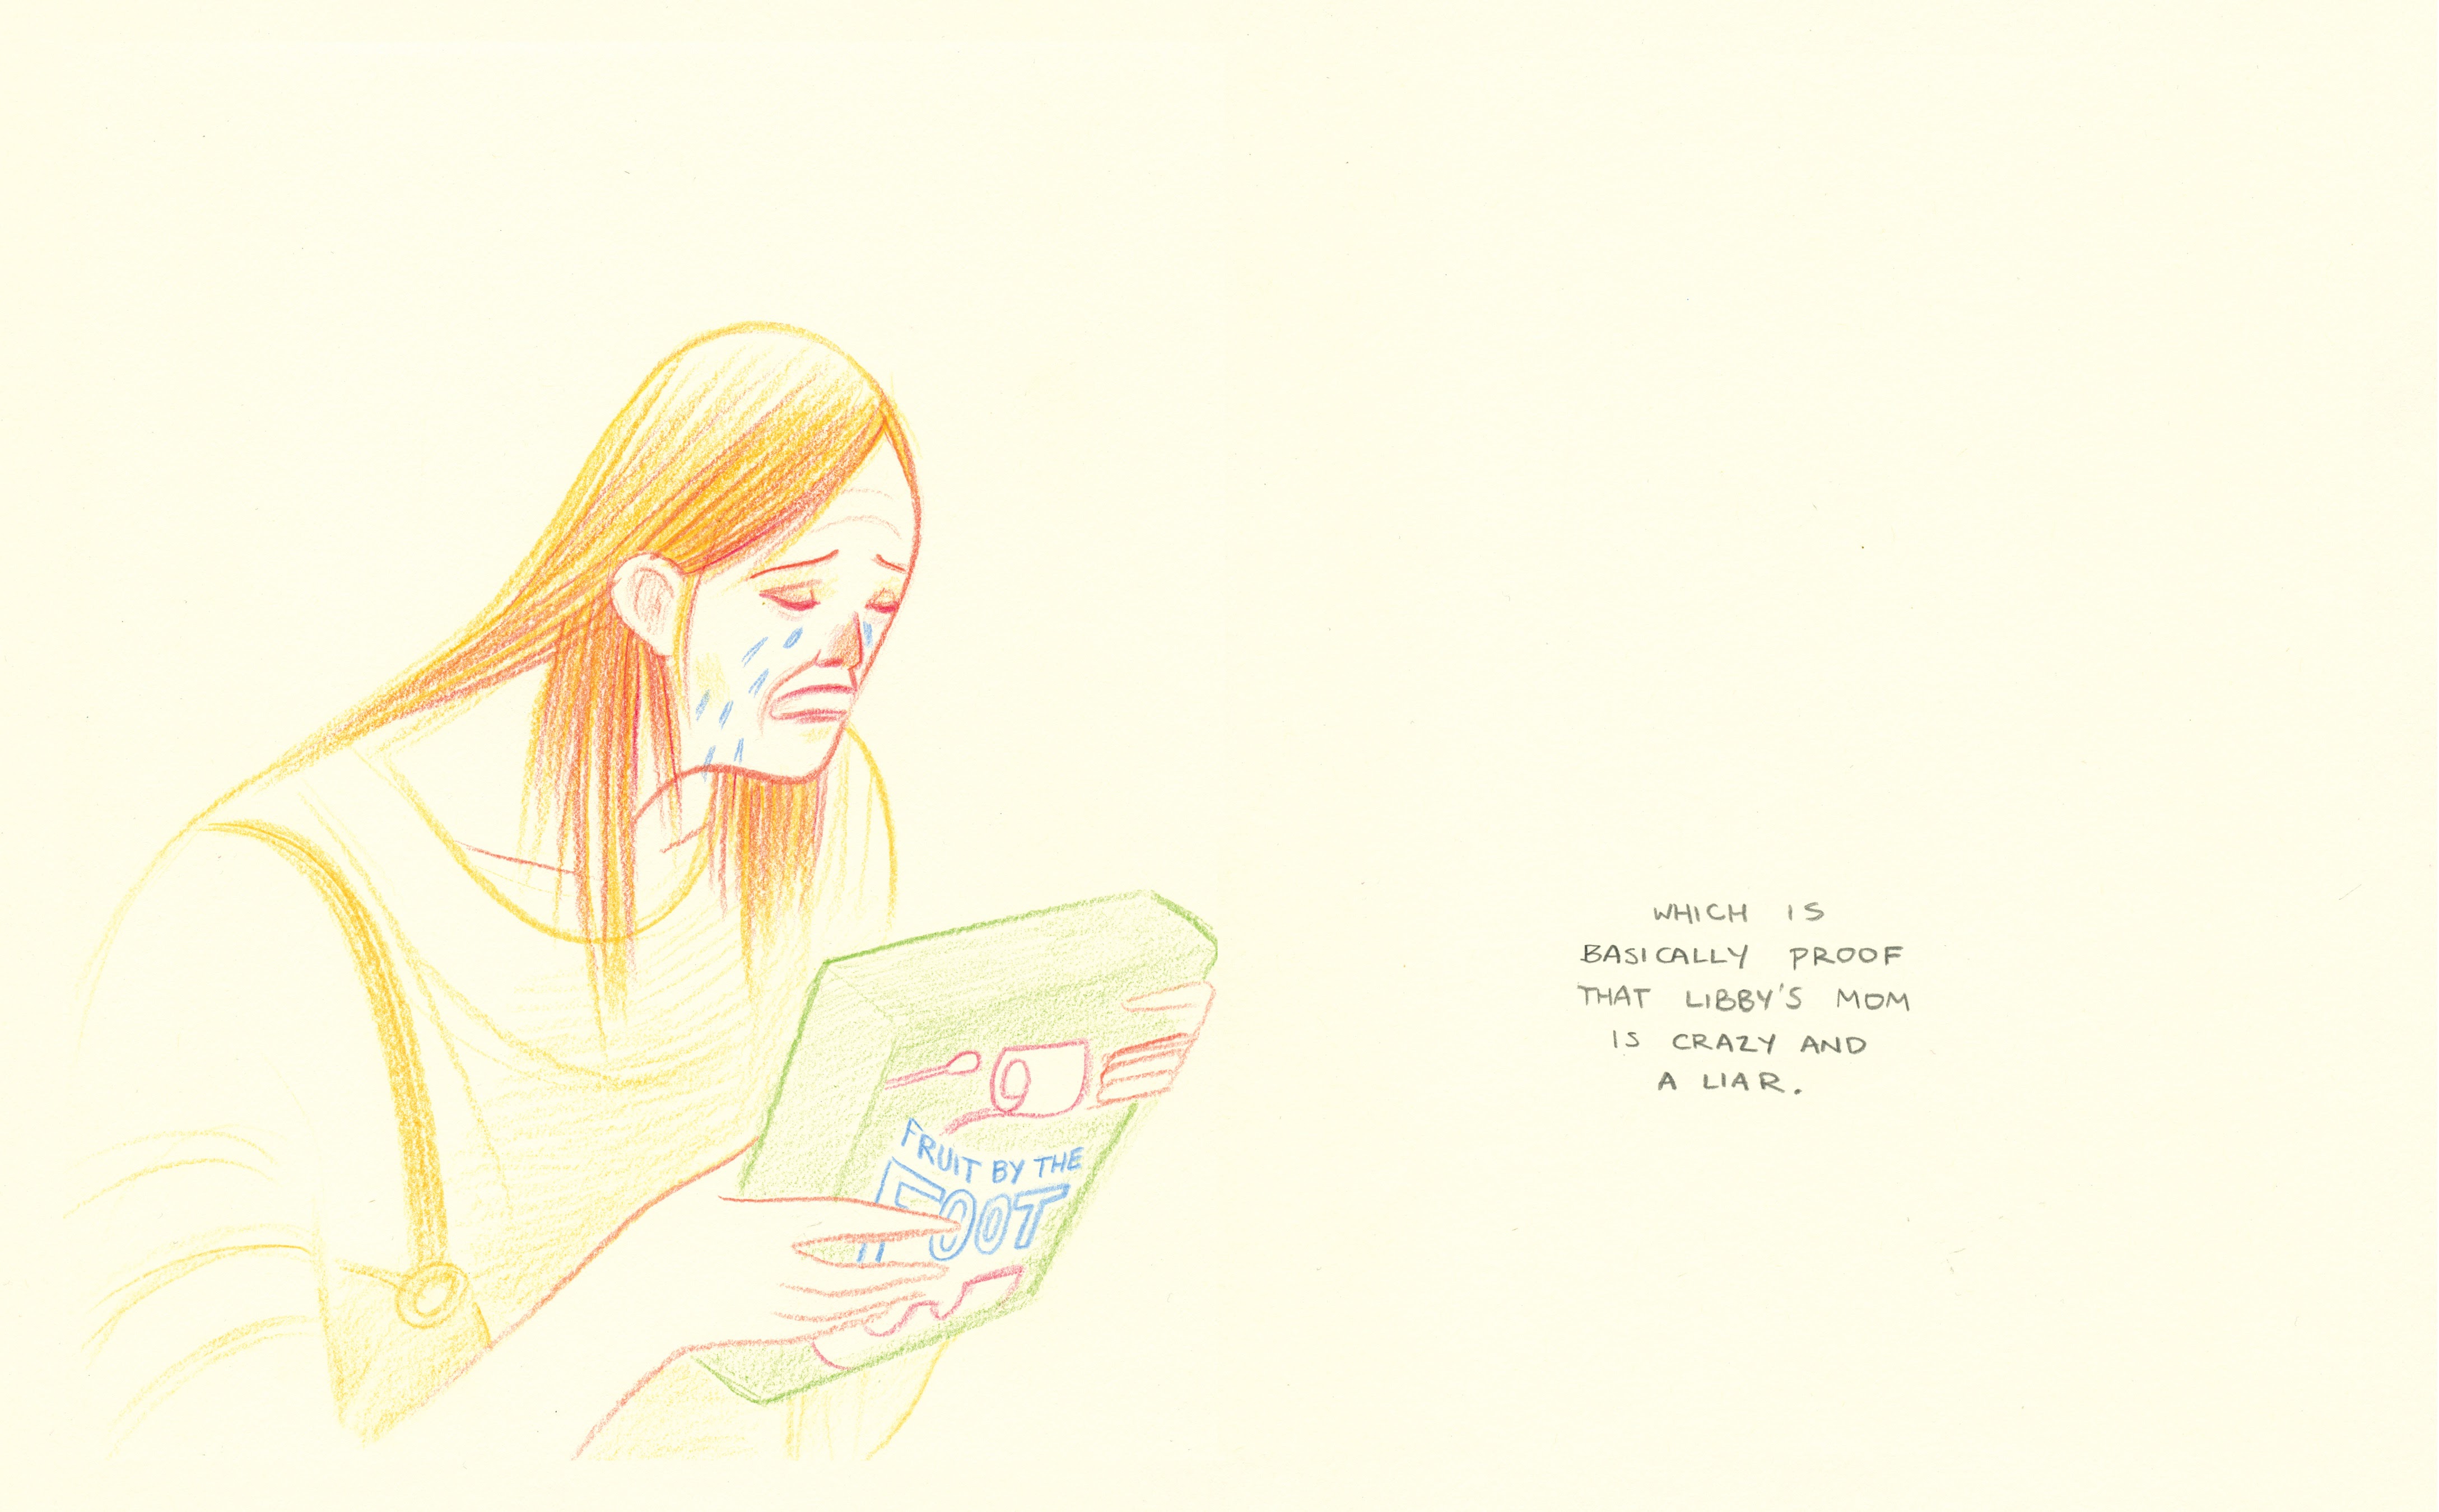 FRUIT BY THE
FOOT
WHICH IS
BASICALLY PROOF
THAT LIBBY'S MOM
IS CRAZY AND
A LIAR.